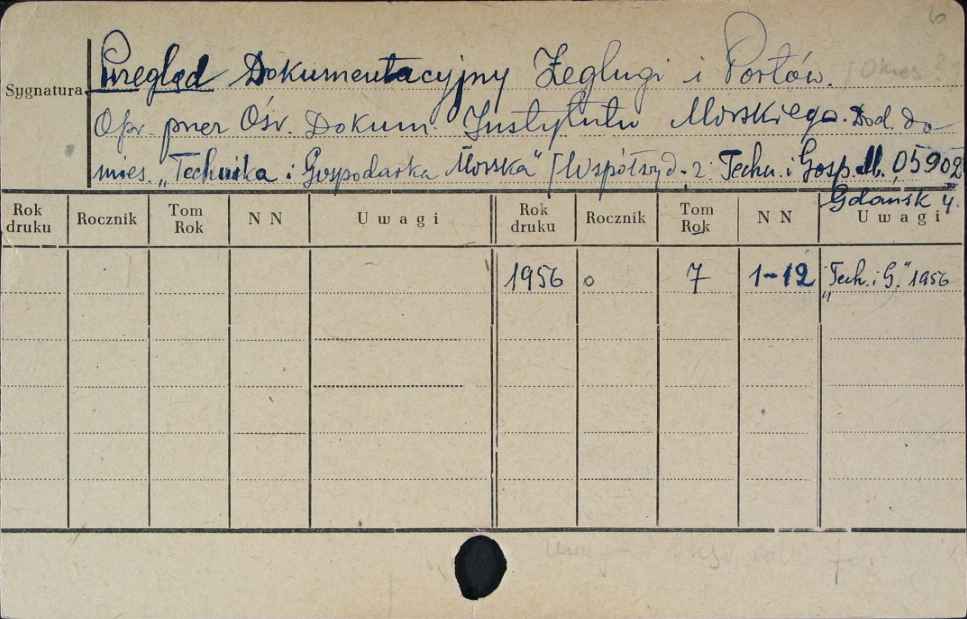 6
Przegląd Dokumentacyjny Żeglugi i Portów.
Sygnatura
Opr. przez Ośr. Dokum. Instytutu Morskiego. Dod. do
mies. „Technika i Gospodarka Morska" [Współwyd. z: Techn. i Gosp. M. 05902
Gdańsk 4.
Rok druku Rocznik Tom Rok N N Uwagi Rok druku Rocznik Tom Rok N N Uwagi
1956 o 7 1-12 „Tech. i G." 1956